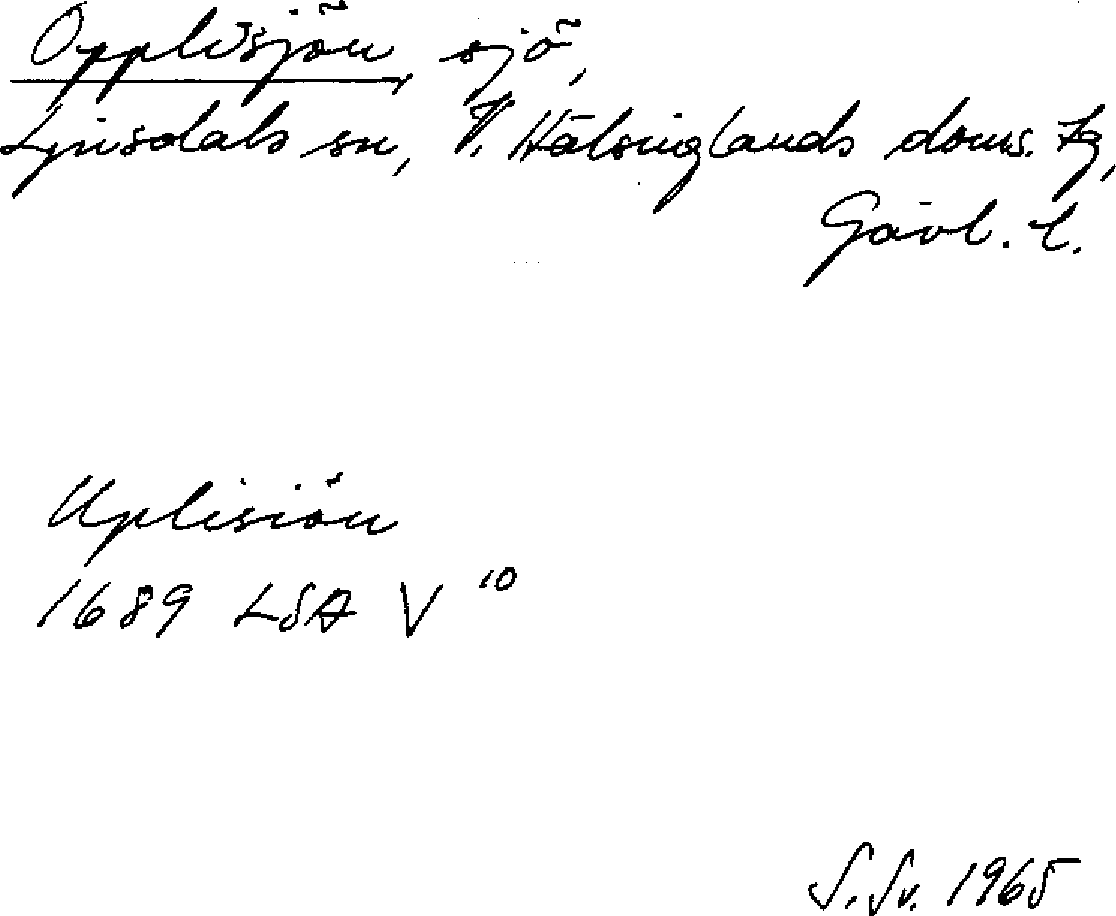 Opplisjön, sjö,
Ljusdals sn, V. Hälsinglands doms. tg,
Gävl. l.
Uplisiön
1689 LSA V 10
S. Sv. 1965